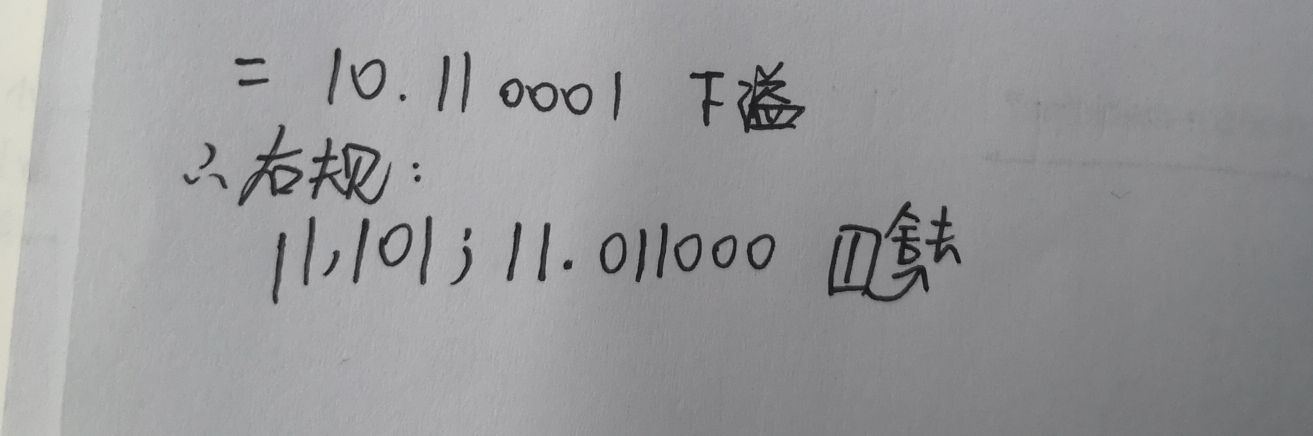 = 10.110001 下溢
∴右规:
11,101; 11.011000 ①舍去